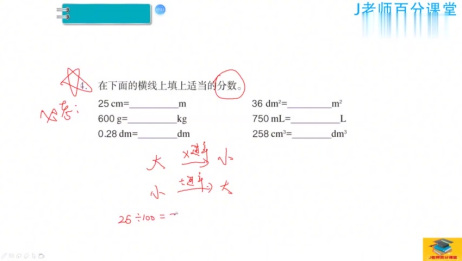 J老师百分课堂
1. 在下面的横线上填上适当的分数。
必考：
25 cm=________m 36 dm²=________m²
600 g=________kg 750 mL=________L
0.28 dm=________dm 258 cm³=________dm³
大 ×进率 小
小 ÷进率 大
25÷100=
J老师百分课堂